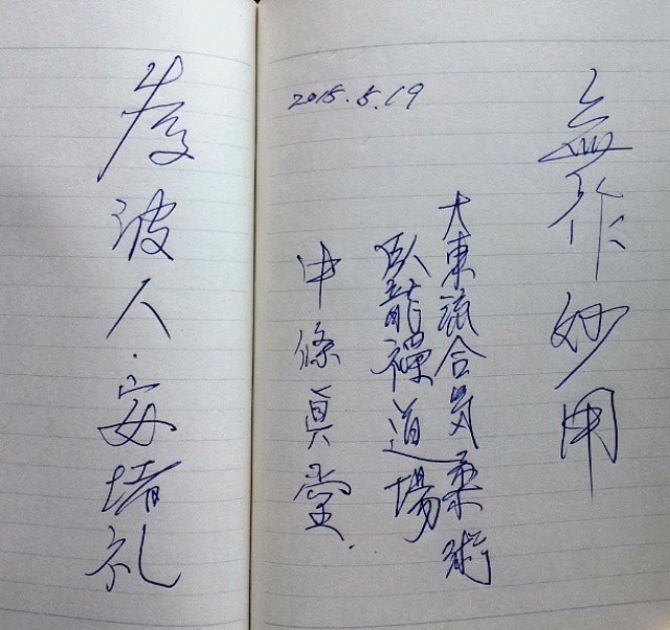 無作妙用
大東流合気柔術
臥龍禅道場
2015.5.19
中條眞堂
波人・安堵礼